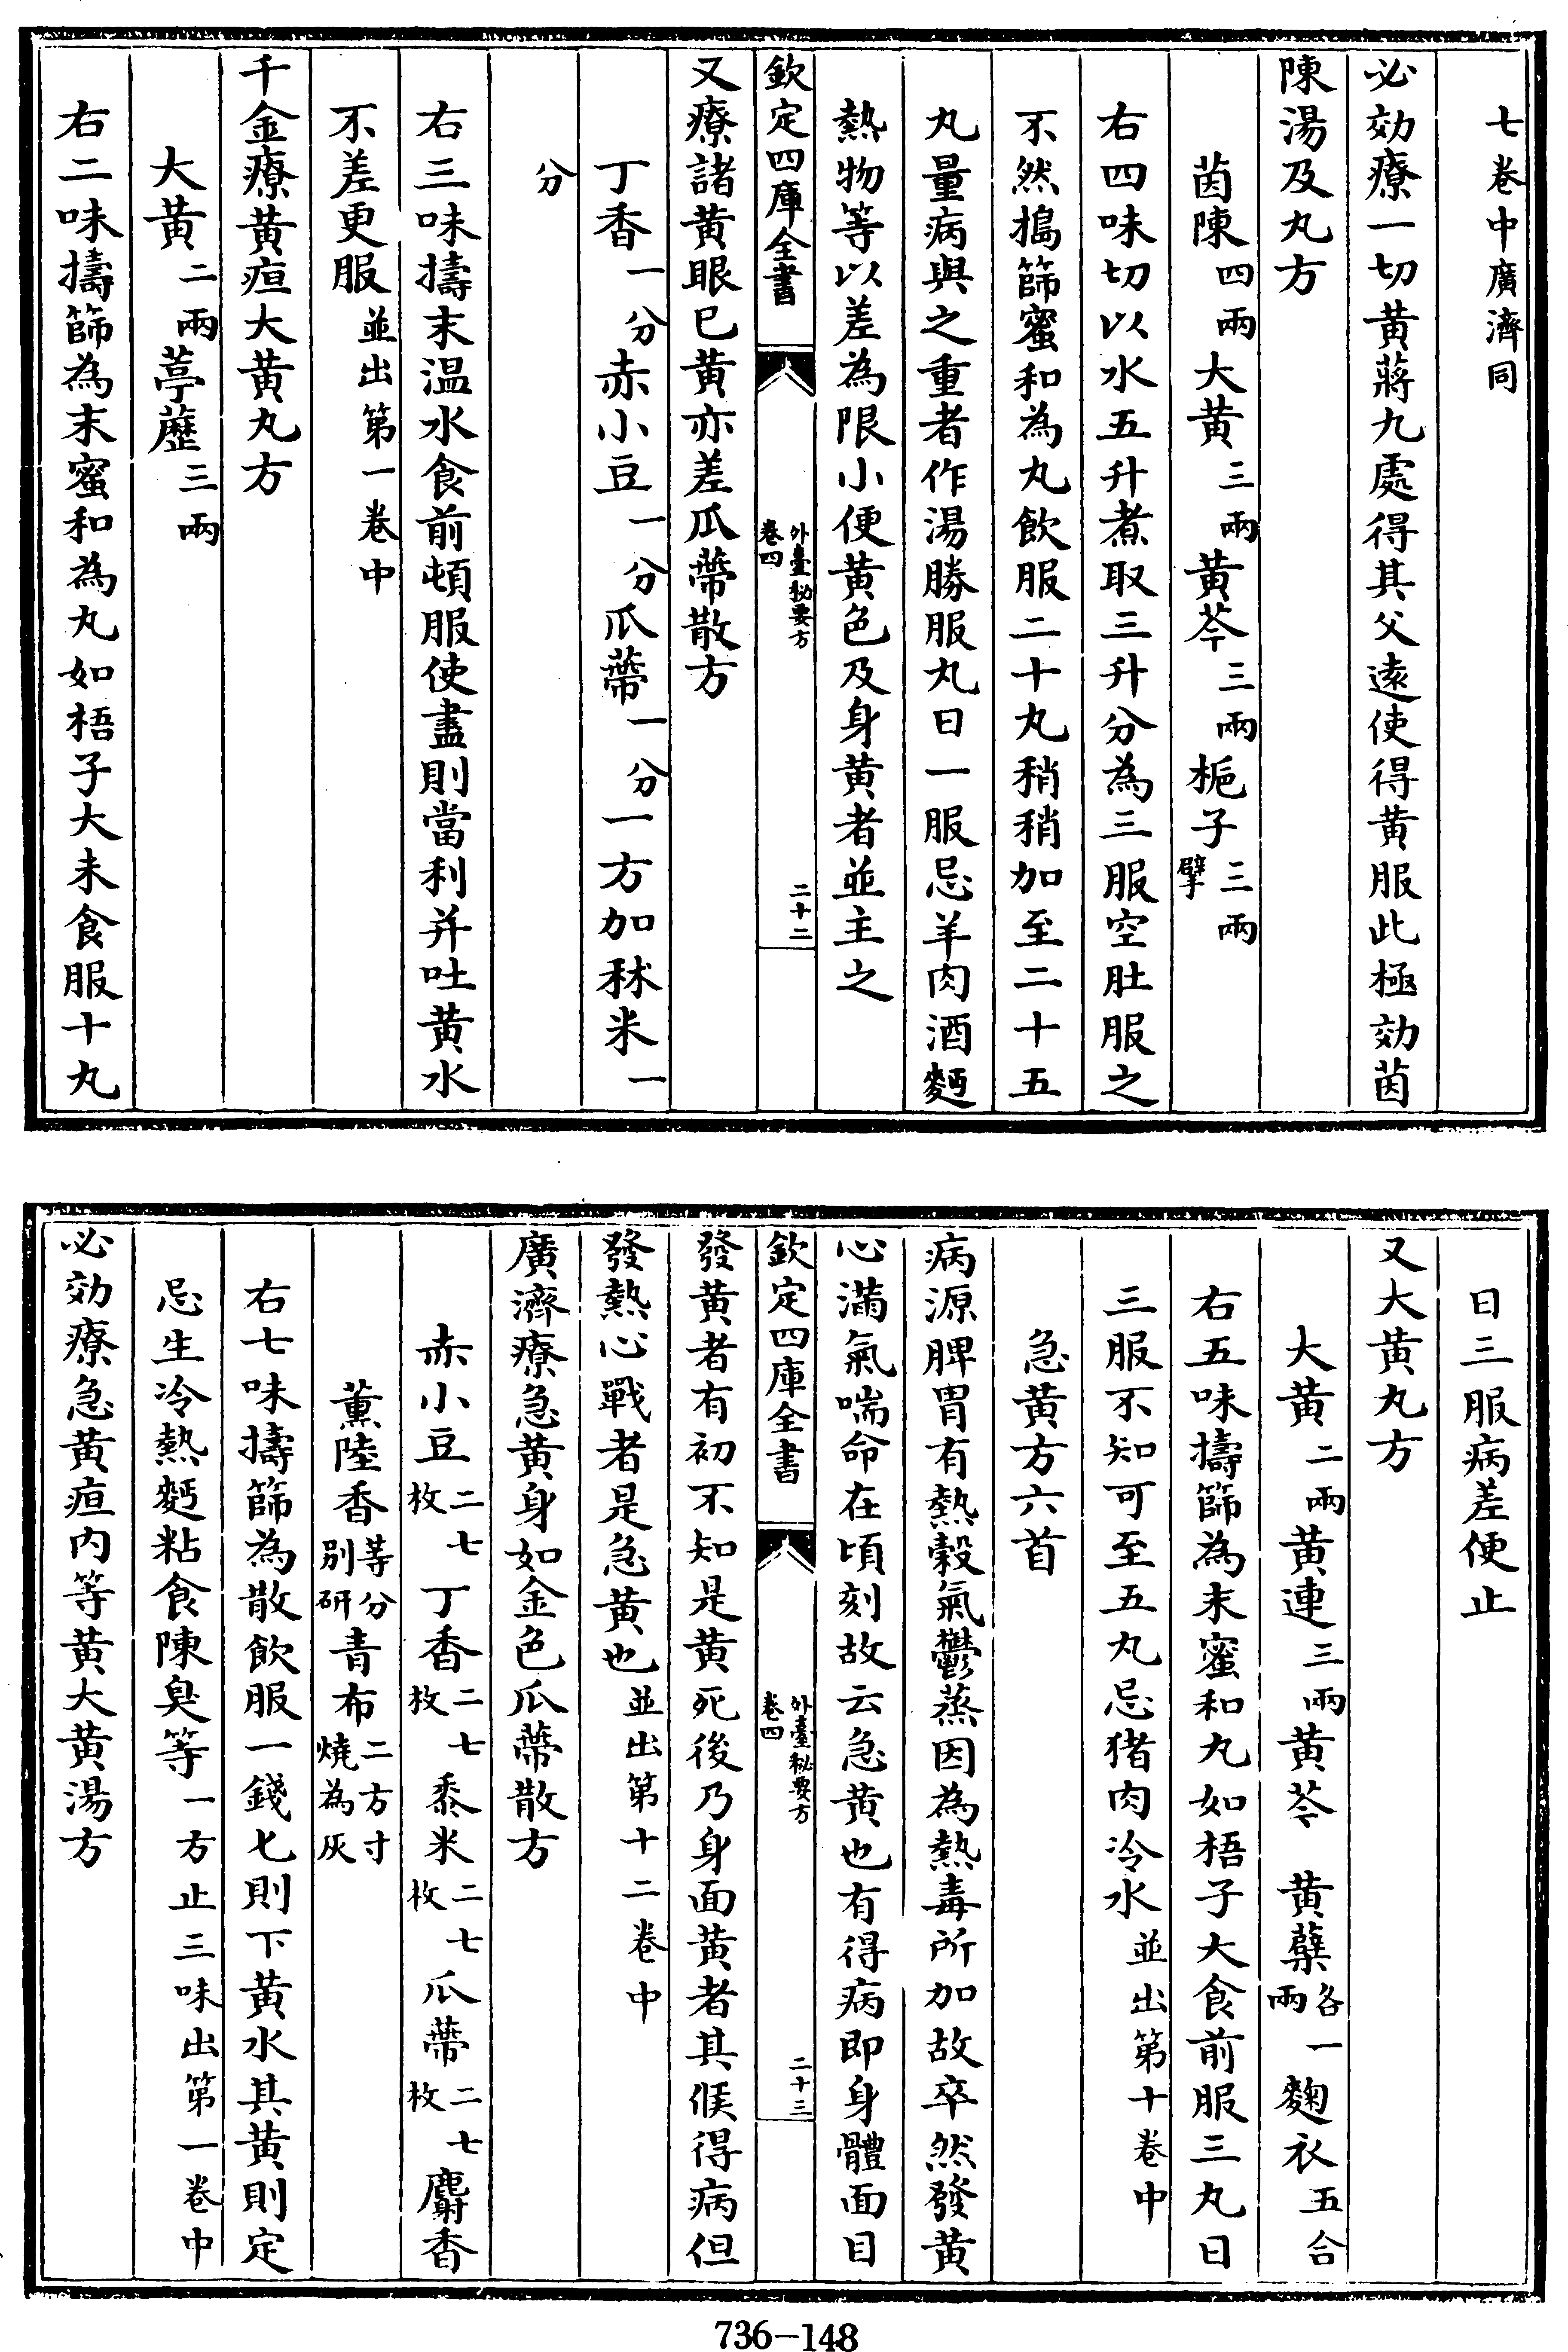 七卷中廣濟同
必効療一切黄蔣九處得其父逺使得黄服此極効茵
陳湯及丸方
茵陳四兩大黄三兩黄芩三兩梔子三兩擘
右四味切以水五升煮取三升分為三服空肚服之
不然搗篩蜜和為丸飲服二十丸稍稍加至二十五
丸量病與之重者作湯勝服丸日一服忌羊肉酒麪
熱物等以差為限小便黄色及身黄者並主之
欽定四庫全書
外臺秘要方
卷四
二十二
又療諸黄眼已黄亦差瓜蔕散方
丁香一分赤小豆一分瓜蔕一分一方加秫米一
分
右三味擣末温水食前頓服使盡則當利并吐黄水
不差更服並出第一卷中
千金療黄疸大黄丸方
大黄二兩葶藶三兩
右二味擣篩為末蜜和為丸如梧子大未食服十丸
日三服病差便止
又大黄丸方
大黄二兩黄連三兩黄芩 黄蘗各一兩麴衣五合
右五味擣篩為末蜜和丸如梧子大食前服三丸日
三服不知可至五丸忌猪肉冷水並出第十卷中
急黄方六首
病源脾胃有熱穀氣鬱蒸因為熱毒所加故卒然發黄
心滿氣喘命在頃刻故云急黄也有得病即身體面目
欽定四庫全書
外臺秘要方
卷四
二十三
發黄者有初不知是黄死後乃身面黄者其候得病但
發熱心戰者是急黄也並出第十二卷中
廣濟療急黄身如金色瓜蔕散方
赤小豆二七枚丁香二七枚黍米二七枚瓜蔕二七枚麝香
薰陸香等分别研青布二方寸燒為灰
右七味擣篩為散飲服一錢匕則下黄水其黄則定
忌生冷熱麪粘食陳臭等一方止三味出第一卷中
必効療急黄疸内等黄大黄湯方
736-148